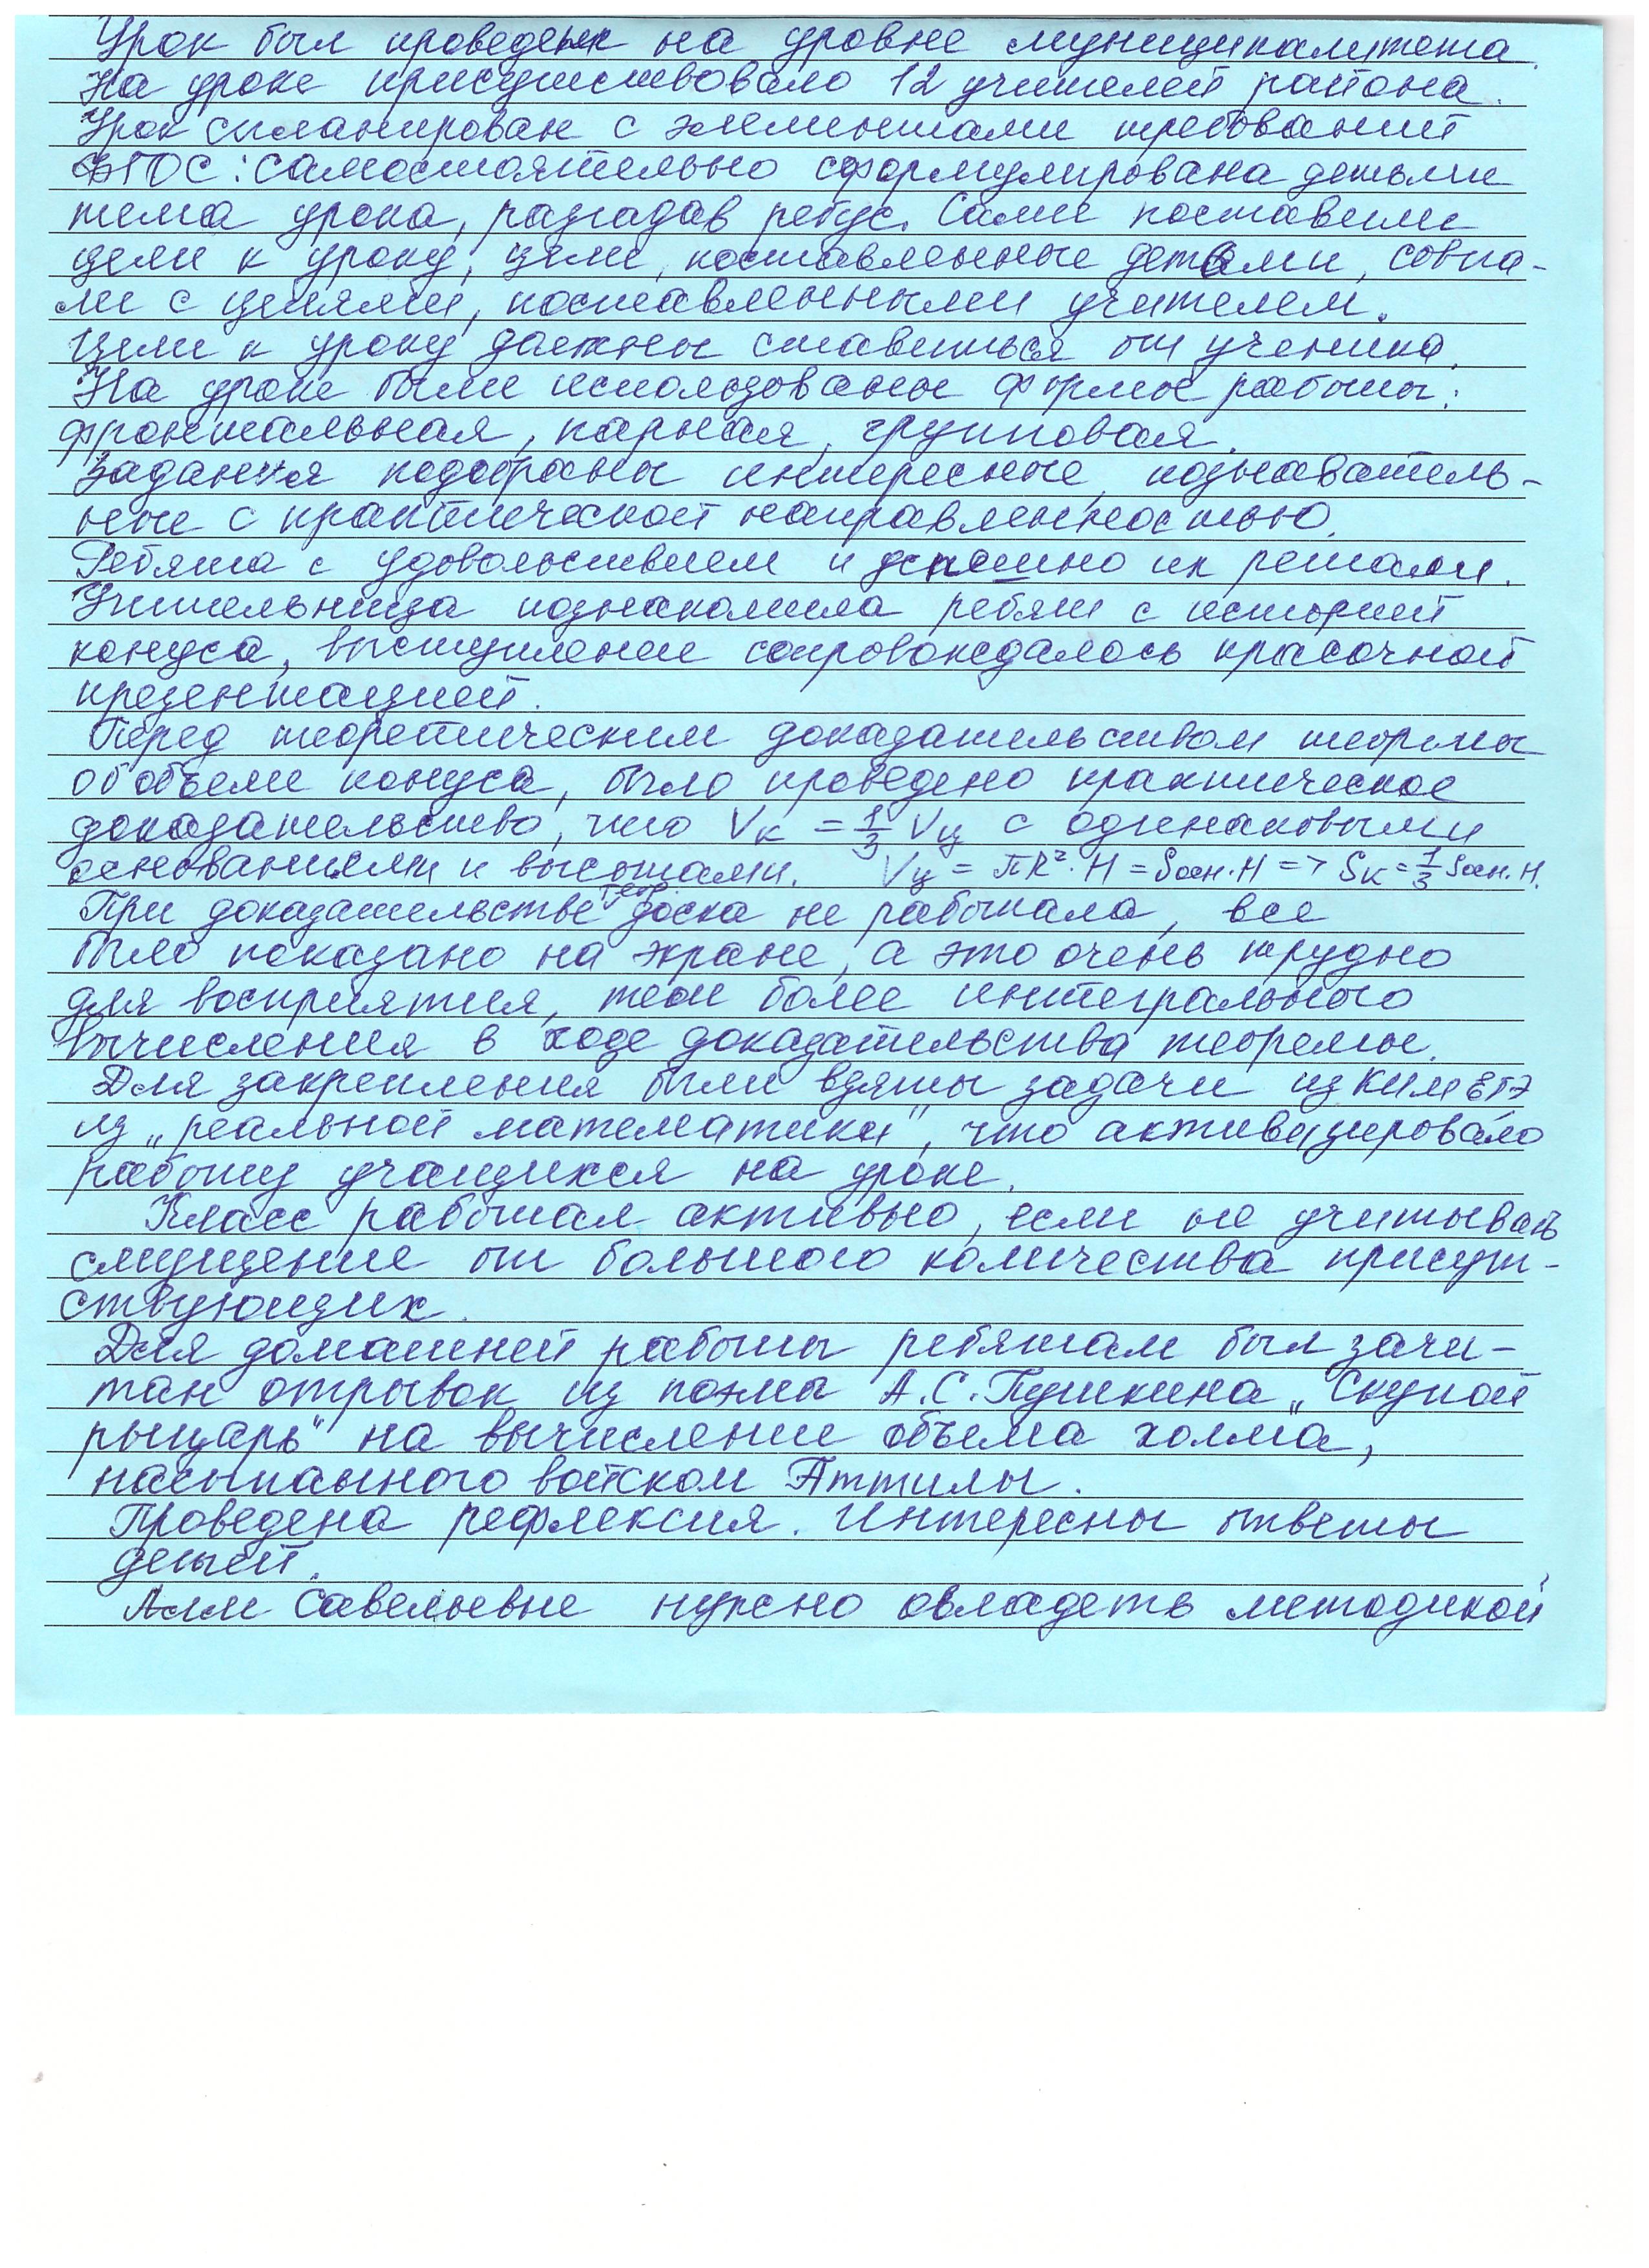 Урок был проведен на уровне муниципалитета.
На уроке присутствовало 12 учителей района.
Урок спланирован с элементами требований
ФГОС: самостоятельно сформулирована детьми
тема урока, разгадав ребус. Сами поставили
цели к уроку, цели, поставленные детьми, совпа-
ли с целями, поставленными учителем.
Цели к уроку должны ставиться от ученика.
На уроке были использованы формы работы:
фронтальная, парная, групповая.
Задания подобраны интересные, познаватель-
ные с практической направленностью.
Ребята с удовольствием и успешно их решали.
Учительница познакомила ребят с историей
конуса, выступление сопровождалось красочной
презентацией.
Перед теоретическим доказательством теоремы
об объеме конуса, было проведено практическое
доказательство, что Vк = 1/3 Vц с одинаковыми
основаниями и высотами. Vц = πR²·H = Sосн.·H => Sк = 1/3 Sосн.·H.
При доказательстве теор. доска не работала, все
было показано на экране, а это очень трудно
для восприятия, тем более интегрального
вычисления в ходе доказательства теоремы.
Для закрепления были взяты задачи из КИМ ЕГЭ
из „реальной математики", что активизировало
работу учащихся на уроке.
Класс работал активно, если не учитывать
смущение от большого количества присут-
ствующих.
Для домашней работы ребятам был зачи-
тан отрывок из поэмы А.С. Пушкина „Скупой
рыцарь" на вычисление объема холма,
насыпанного войском Аттилы.
Проведена рефлексия. Интересны ответы
детей.
Алле Савельевне нужно овладеть методикой